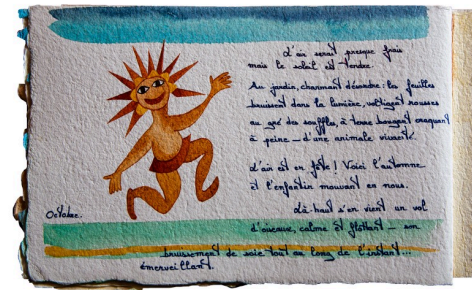 L'air serait presque frais
mais le soleil est tendre.
Au jardin, charmant désordre : les feuilles
bruissent dans la lumière, voltigent rousses
au gré des souffles, à terre bougent craquant
à peine — d'une animale vivacité.
L'air est en fête ! Voici l'automne
et l'enfantin mouvant en nous.
Octobre.
Là-haut s'en vient un vol
d'oiseaux, calme et flottant — son
bruissement de soie tout au long de l'instant...
émerveillant.